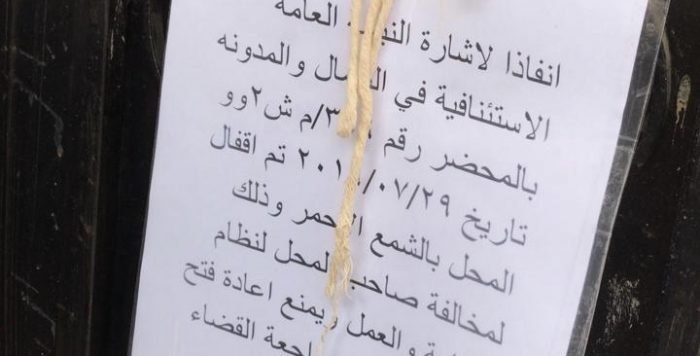 انفاذا لاشارة النيابة العامة
الاستئنافية في الشمال والمدونه
بالمحضر رقم /م ش٢وو
تاريخ ٠٧/٢٩/ تم اقفال
المحل بالشمع الاحمر وذلك
لمخالفة صاحب المحل لنظام
و العمل ويمنع اعادة فتح
القضاء